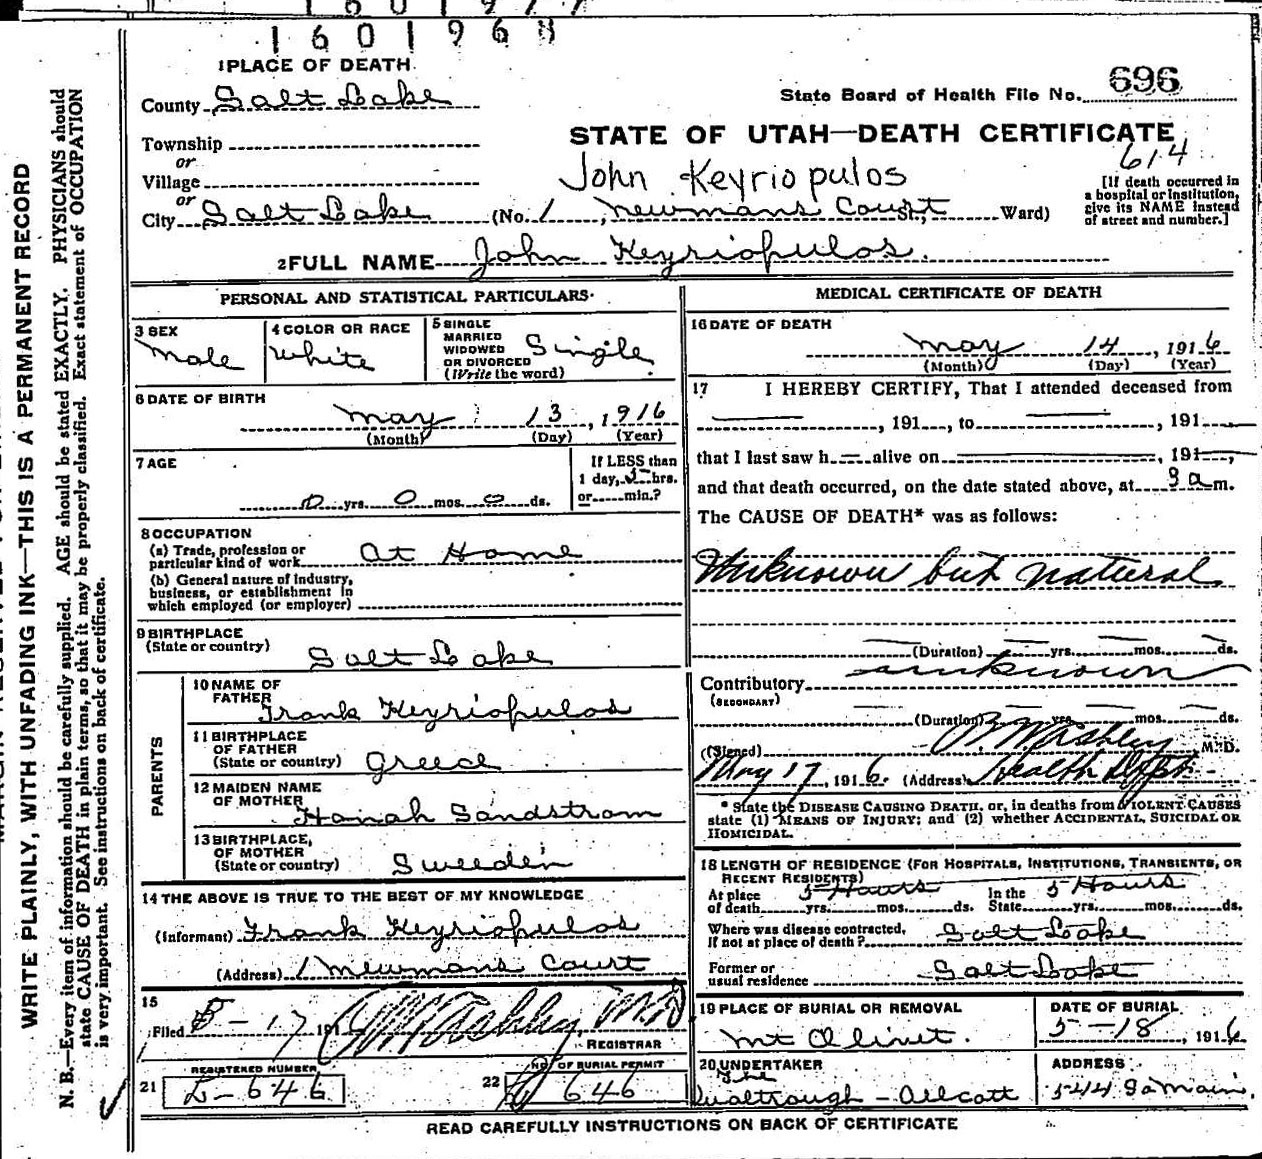 1601968
1 PLACE OF DEATH
County Salt Lake
State Board of Health File No. 696
Township
or
Village
or
City Salt Lake (No. 1, Newmans Court St., Ward)
STATE OF UTAH—DEATH CERTIFICATE
614
John Keyriopulos
[If death occurred in
a hospital or institution,
give its NAME instead
of street and number.]
2 FULL NAME John Keyriopulos.
PERSONAL AND STATISTICAL PARTICULARS
3 SEX
Male
4 COLOR OR RACE
White
5 SINGLE
MARRIED
WIDOWED
OR DIVORCED
(Write the word)
Single
6 DATE OF BIRTH
May 13, 1916
(Month) (Day) (Year)
7 AGE
0 yrs. 0 mos. 0 ds.
If LESS than
1 day, 5 hrs.
or min.?
8 OCCUPATION
(a) Trade, profession or
particular kind of work At Home
(b) General nature of Industry,
business, or establishment in
which employed (or employer)
9 BIRTHPLACE
(State or country)
Salt Lake
PARENTS
10 NAME OF
FATHER
Frank Keyriopulos
11 BIRTHPLACE
OF FATHER
(State or country) Greece
12 MAIDEN NAME
OF MOTHER
Hanah Sandstrom
13 BIRTHPLACE,
OF MOTHER
(State or country) Sweeden
14 THE ABOVE IS TRUE TO THE BEST OF MY KNOWLEDGE
(Informant) Frank Keyriopulos
(Address) 1 Newmans Court
15
Filed 5-17 191 Ashley, M.D.
REGISTRAR
REGISTERED NUMBER
21 5-646
NO. OF BURIAL PERMIT
22 646
MEDICAL CERTIFICATE OF DEATH
16 DATE OF DEATH
May 14, 1916
(Month) (Day) (Year)
17 I HEREBY CERTIFY, That I attended deceased from
, 191, to , 191
that I last saw h alive on , 191,
and that death occurred, on the date stated above, at 3 a m.
The CAUSE OF DEATH* was as follows:
Unknown but natural
(Duration) yrs. mos. ds.
Contributory unknown
(SECONDARY)
(Duration) yrs. mos. ds.
(Signed) Ashley, M.D.
May 17, 1916. (Address) Health Dept.
* State the DISEASE CAUSING DEATH, or, in deaths from VIOLENT CAUSES
state (1) MEANS OF INJURY; and (2) whether ACCIDENTAL, SUICIDAL OR
HOMICIDAL.
18 LENGTH OF RESIDENCE (FOR HOSPITALS, INSTITUTIONS, TRANSIENTS, OR
RECENT RESIDENTS)
At place 5 Hours In the 5 Hours
of death yrs. mos. ds. State yrs. mos. ds.
Where was disease contracted,
If not at place of death? Salt Lake
Former or
usual residence Salt Lake
19 PLACE OF BURIAL OR REMOVAL
Mt Olivet.
DATE OF BURIAL
5-18, 1916
20 UNDERTAKER
The
Qualtrough-Allcott
ADDRESS
544 So Main.
READ CAREFULLY INSTRUCTIONS ON BACK OF CERTIFICATE
WRITE PLAINLY, WITH UNFADING INK—THIS IS A PERMANENT RECORD
N. B.—Every item of information should be carefully supplied. AGE should be stated EXACTLY. PHYSICIANS should
state CAUSE OF DEATH in plain terms, so that it may be properly classified. Exact statement of OCCUPATION
is very important. See instructions on back of certificate.